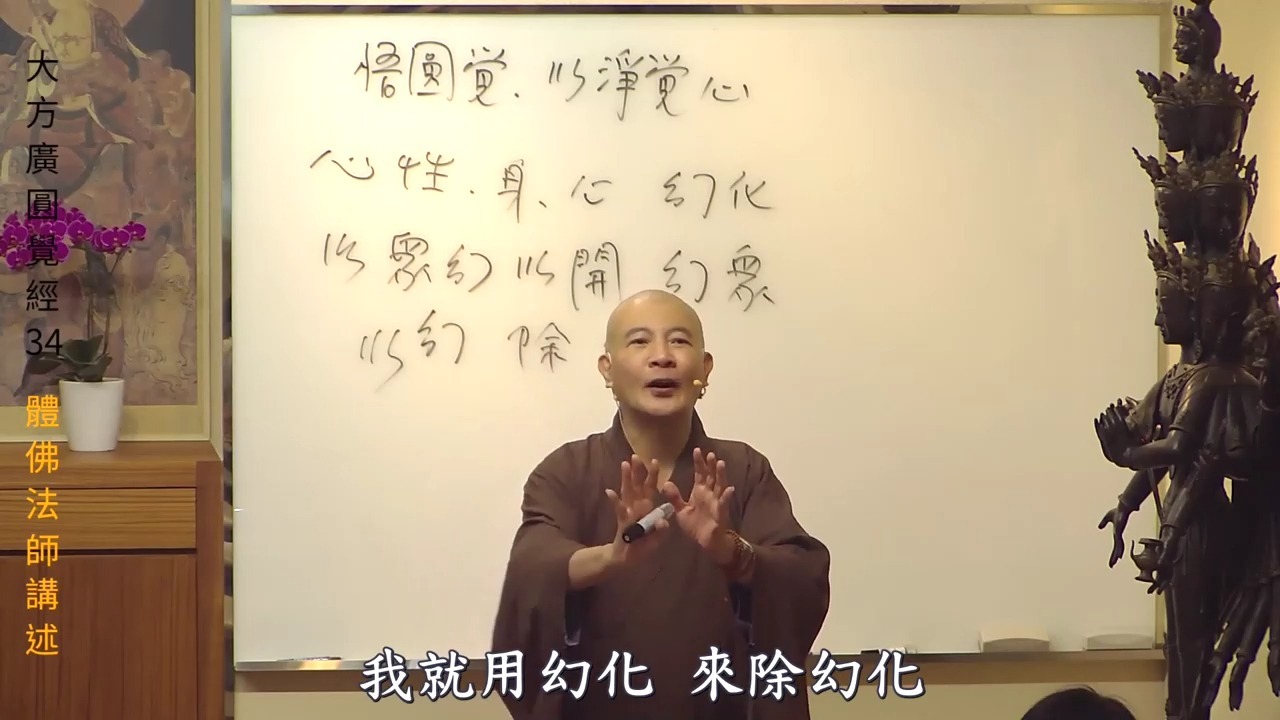 大方廣圓覺經34
體佛法師講述
悟圓覚、以淨覚心
心性、身、心 幻化
以眾幻以開 幻眾
以幻 除
我就用幻化 來除幻化